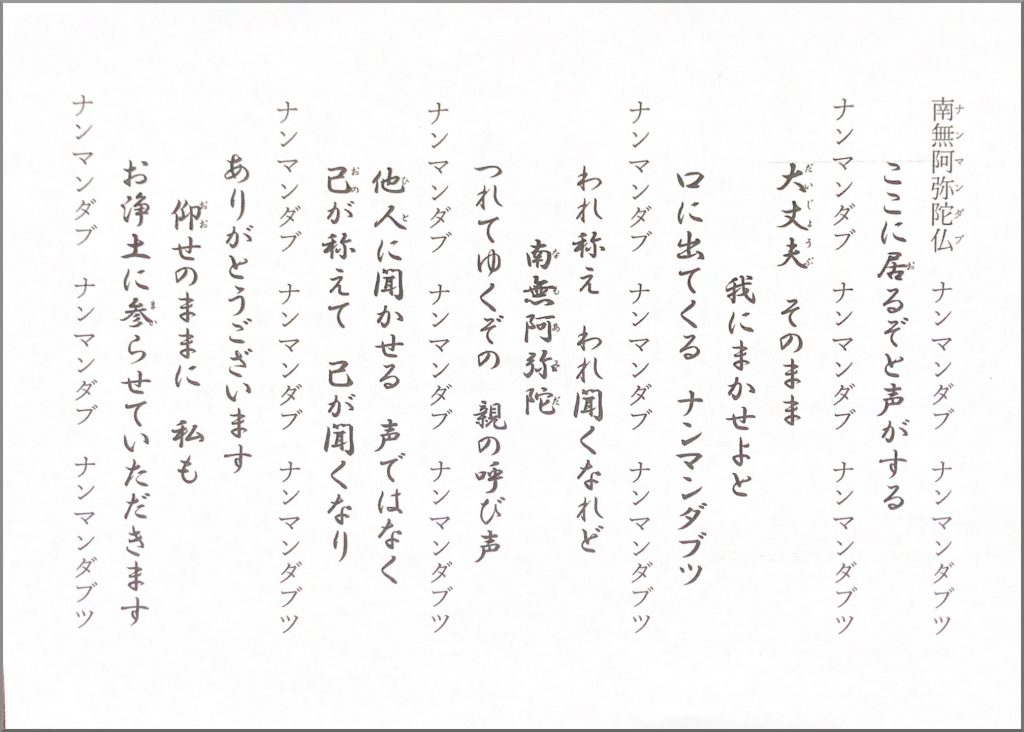 南無阿弥陀仏　ナンマンダブ　ナンマンダブツ
ここに居るぞと声がする
ナンマンダブ　ナンマンダブ　ナンマンダブツ
大丈夫　そのまま
我にまかせよと
口に出てくる　ナンマンダブツ
ナンマンダブ　ナンマンダブ　ナンマンダブツ
われ称え　われ聞くなれど
南無阿弥陀
つれてゆくぞの　親の呼び声
ナンマンダブ　ナンマンダブ　ナンマンダブツ
他人に聞かせる　声ではなく
己が称えて　己が聞くなり
ナンマンダブ　ナンマンダブ　ナンマンダブツ
ありがとうございます
仰せのままに　私も
お浄土に参らせていただきます
ナンマンダブ　ナンマンダブ　ナンマンダブツ